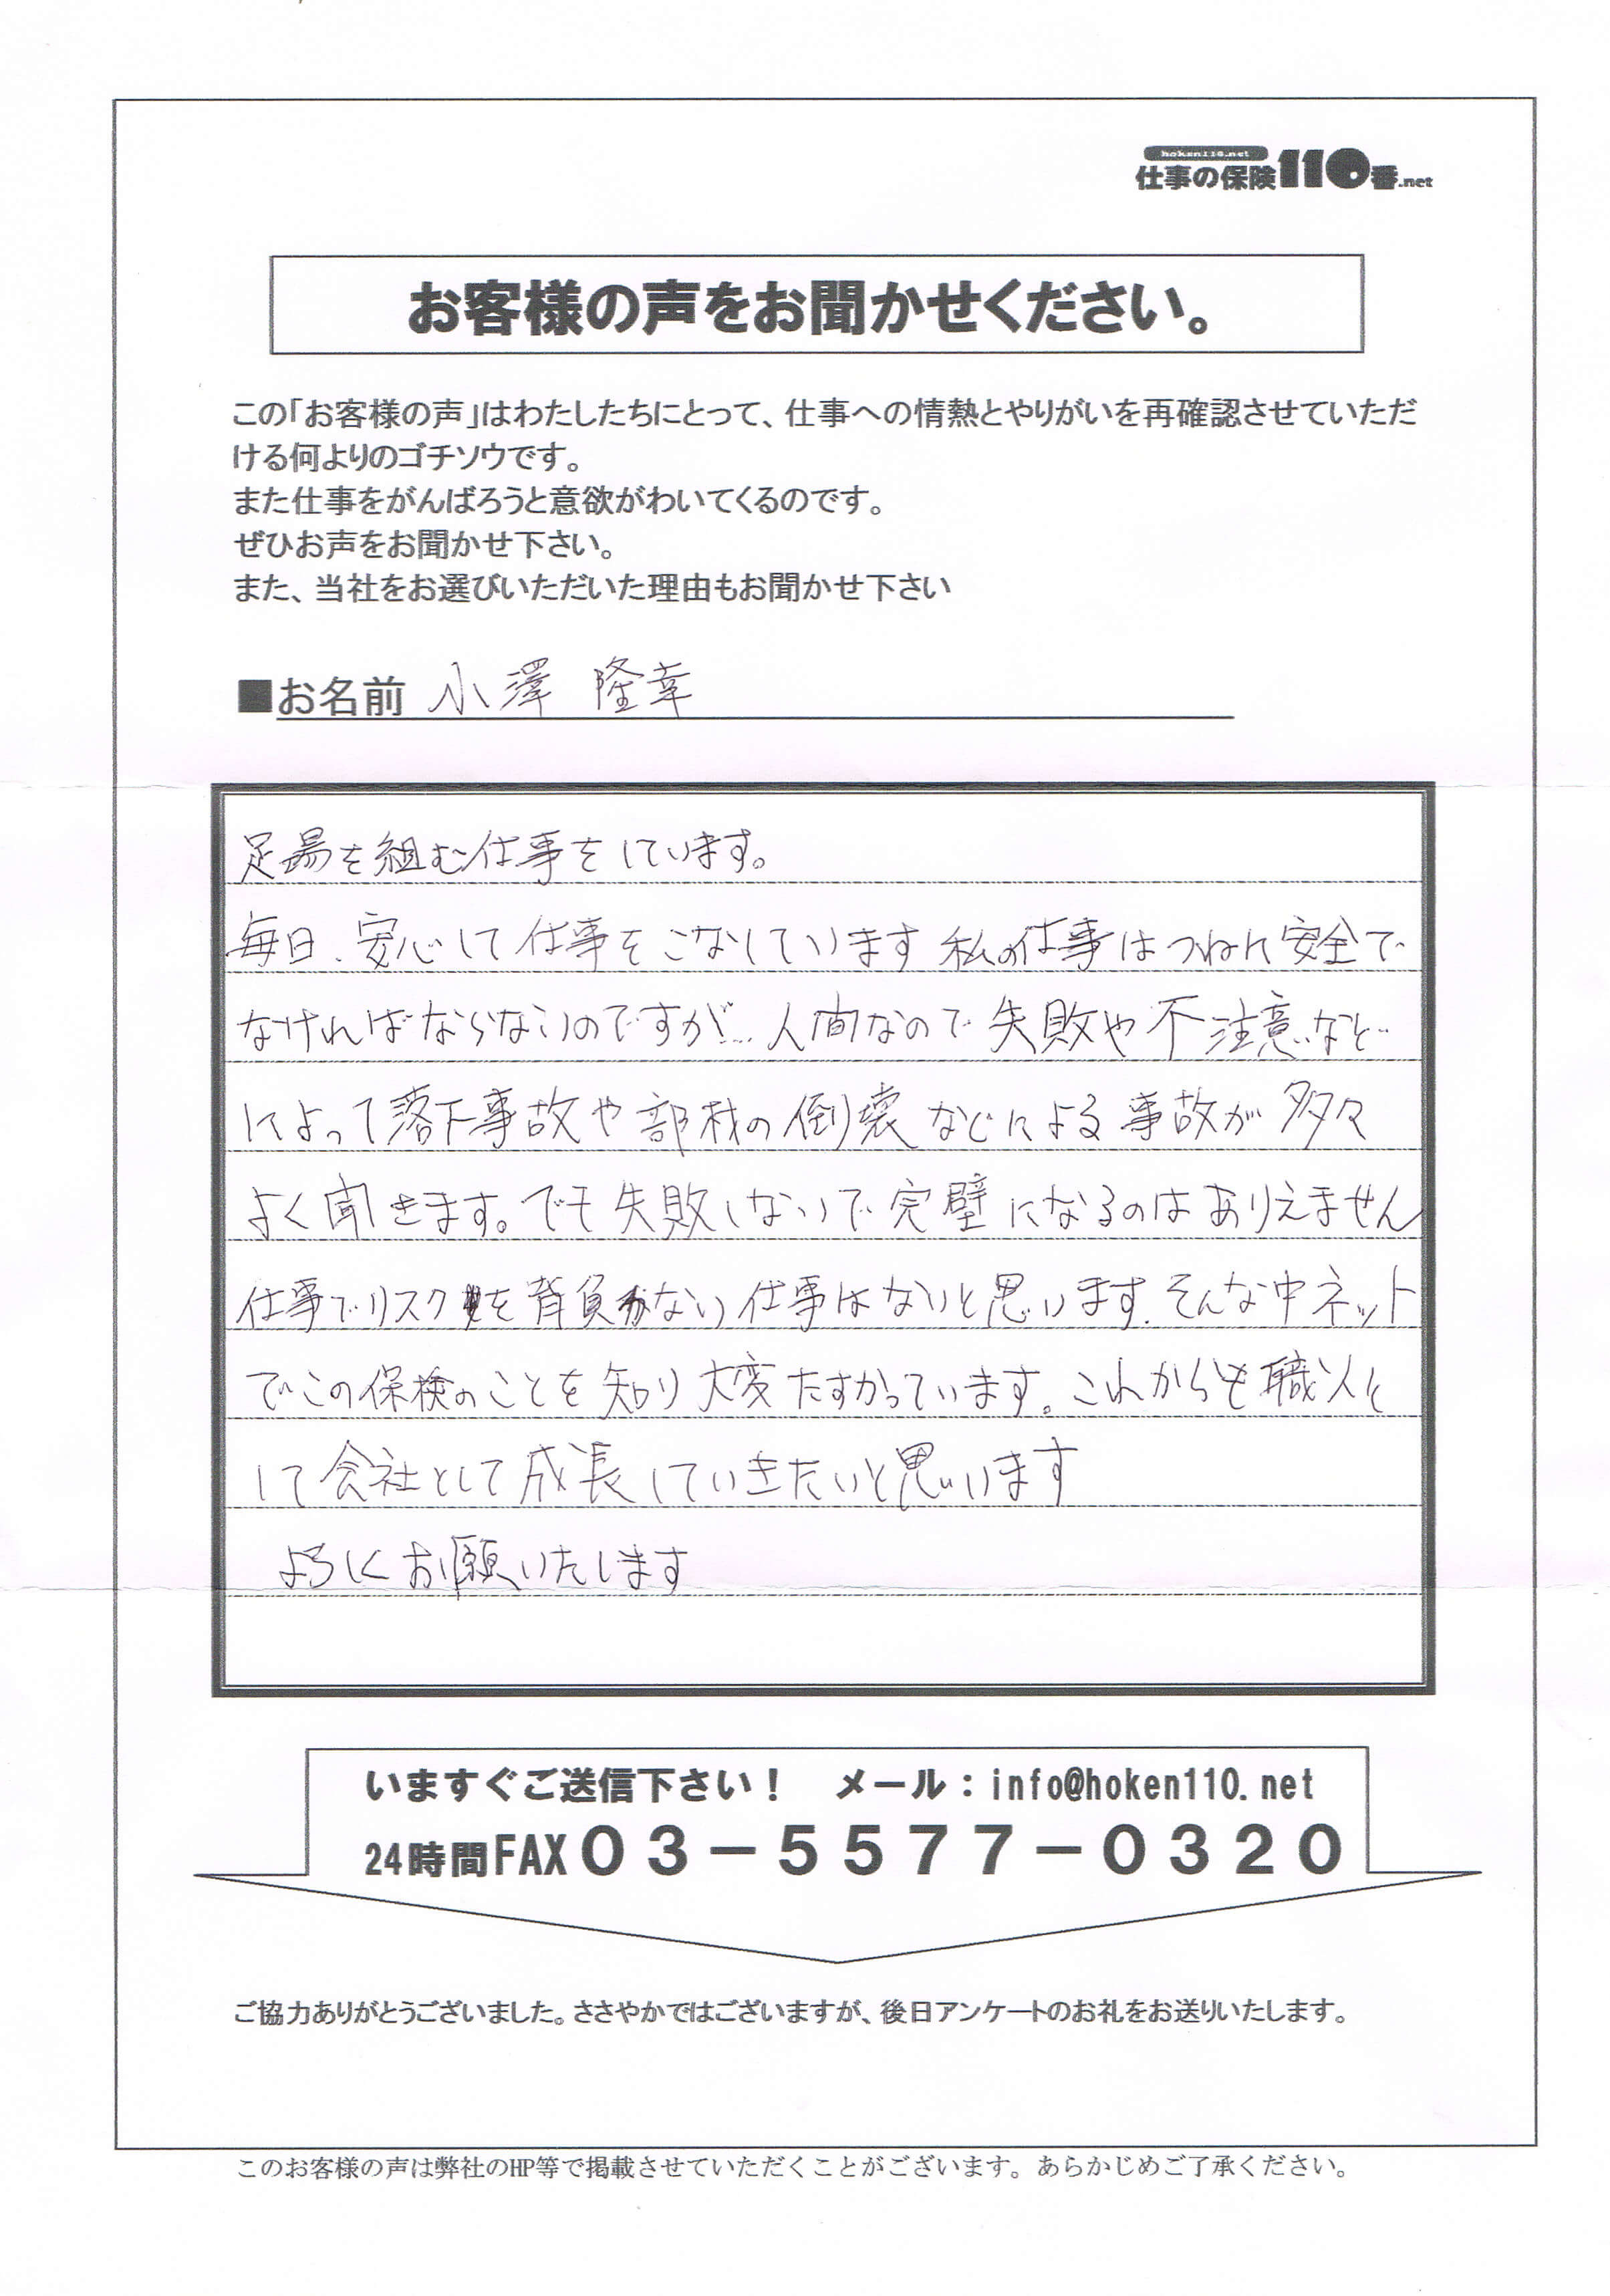 hoken110.net
仕事の保険110番.net
お客様の声をお聞かせください。
この「お客様の声」はわたしたちにとって、仕事への情熱とやりがいを再確認させていただ
ける何よりのゴチソウです。
また仕事をがんばろうと意欲がわいてくるのです。
ぜひお声をお聞かせ下さい。
また、当社をお選びいただいた理由もお聞かせ下さい
■お名前 小澤 隆幸
足場を組む仕事をしています。
毎日、安心して仕事をこなしています 私の仕事はつねに安全で
なければならないのですが… 人間なので失敗や不注意など
によって落下事故や部材の倒壊などによる事故が多々
よく聞きます。でも失敗しないで完璧になるのはありえません
仕事でリスクを背負わない仕事はないと思います。そんな中ネット
でこの保検のことを知り大変たすかっています。これからも職人と
して会社として成長していきたいと思います
よろしくお願いいたします
いますぐご送信下さい! メール:info@hoken110.net
24時間FAX03-5577-0320
ご協力ありがとうございました。ささやかではございますが、後日アンケートのお礼をお送りいたします。
このお客様の声は弊社のHP等で掲載させていただくことがございます。あらかじめご了承ください。